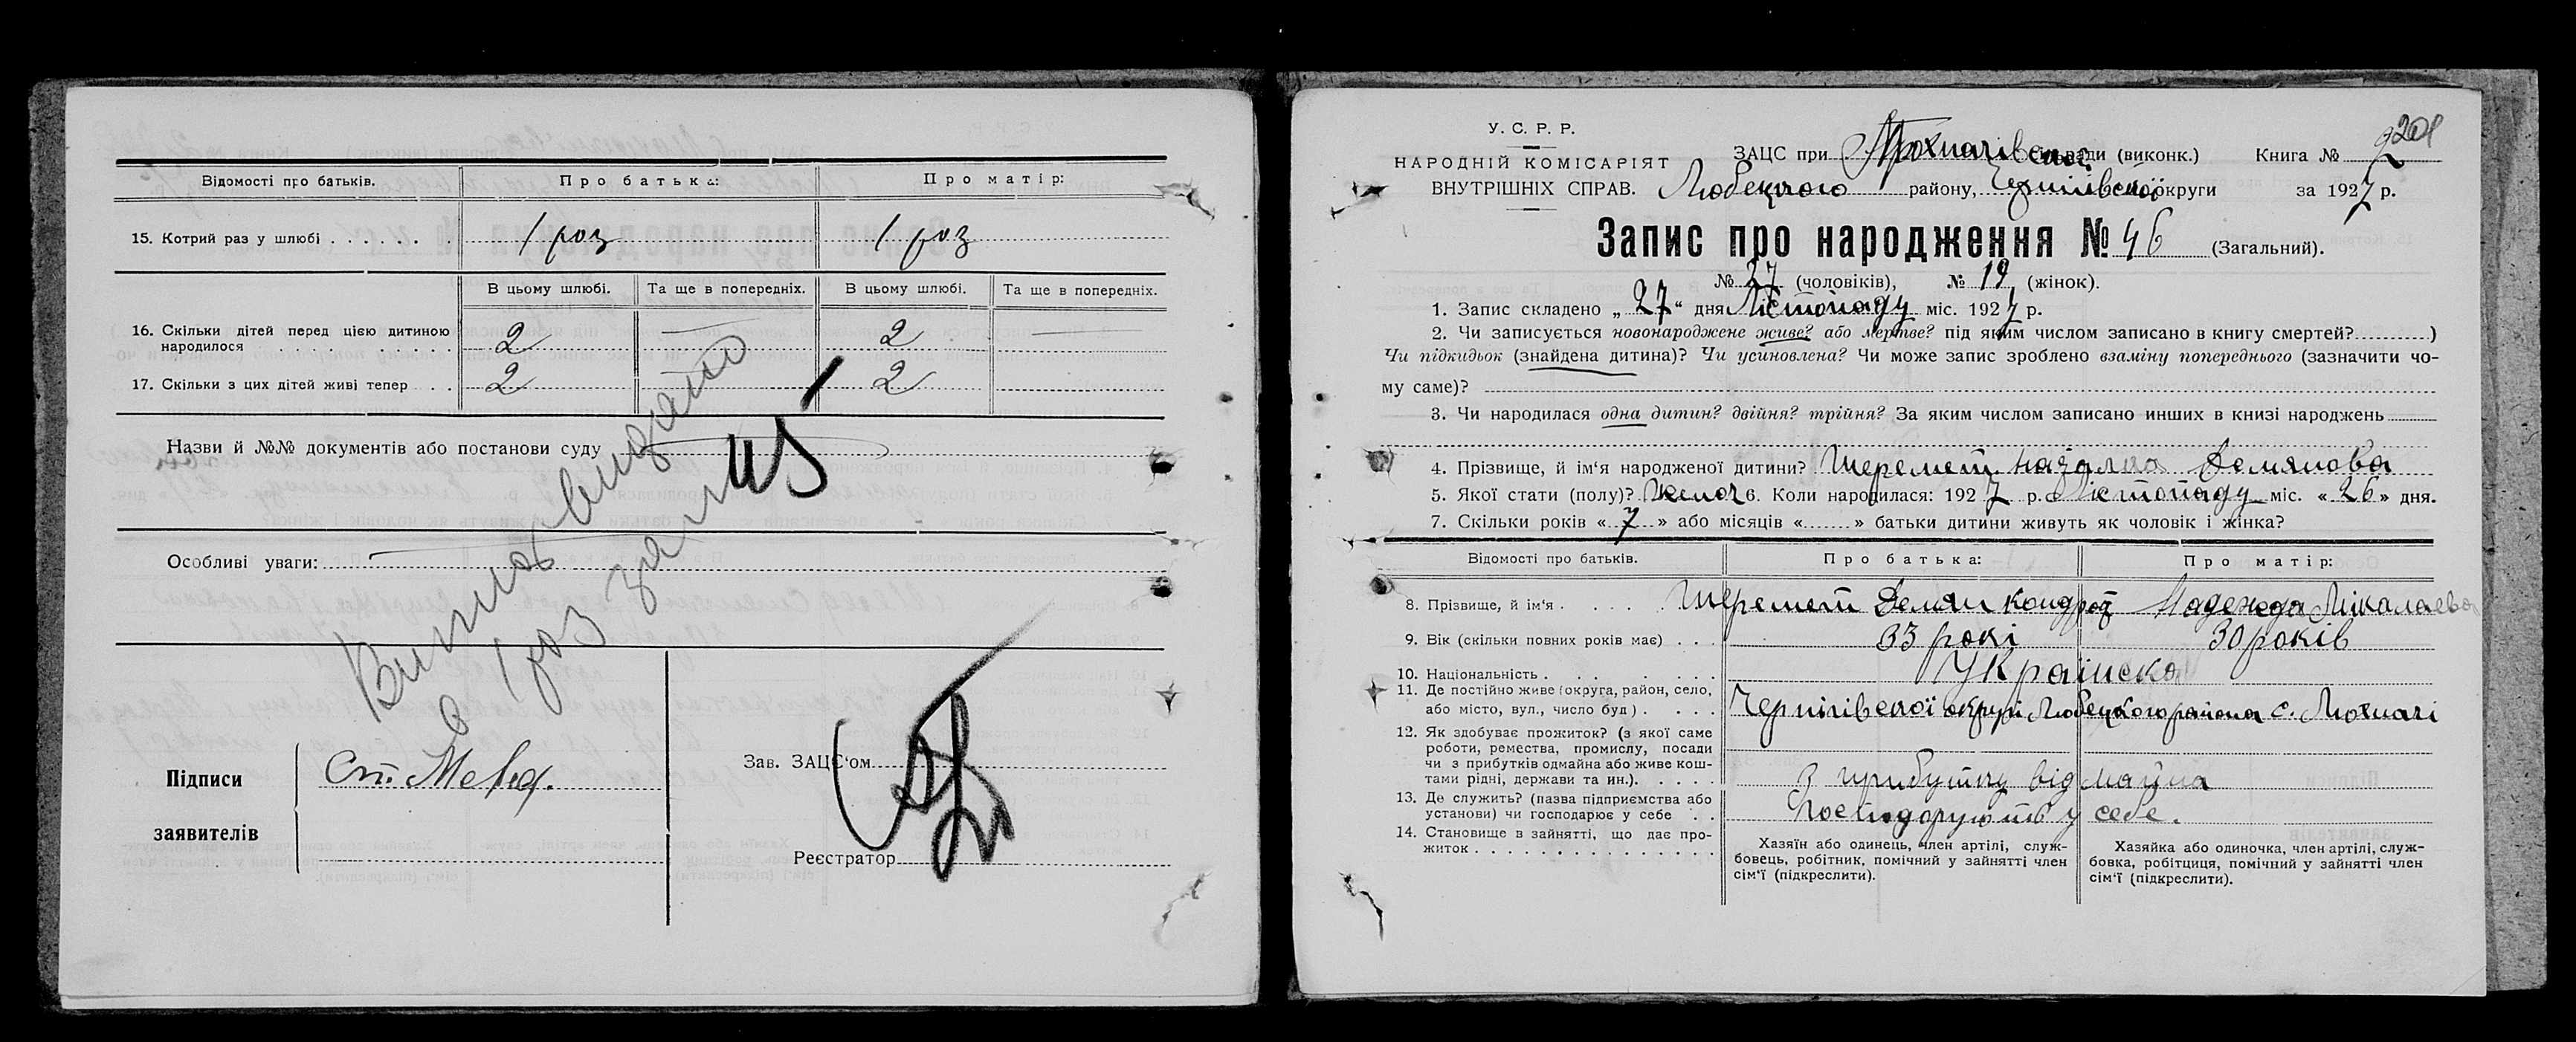 Відомості про батьків. Про батька: Про матір:
15. Котрий раз у шлюбі 1 раз 1 раз
В цьому шлюбі. Та ще в попередніх. В цьому шлюбі. Та ще в попередніх.
16. Скільки дітей перед цією дитиною
народилося 2 — 2 —
17. Скільки з цих дітей живі тепер 2 2
Назви й №№ документів або постанови суду
Особливі уваги:
Підписи
заявителів
Зав. ЗАЦС'ом
Реєстратор
201
У. С. Р. Р.
НАРОДНІЙ КОМІСАРІЯТ
ВНУТРІШНІХ СПРАВ.
ЗАЦС при ради (виконк.) Книга № 2
Любецкого району, Чернігівської округи за 1927 р.
Запис про народження № 46 (Загальний).
№ 27 (чоловіків), № 19 (жінок).
1. Запис складено „27“ дня Лістопаду міс. 1927 р.
2. Чи записується новонароджене живе? або мертве? під яким числом записано в книгу смертей? )
Чи підкидьок (знайдена дитина)? Чи усиновлена? Чи може запис зроблено взаміну попереднього (зазначити чо-
му саме)?
3. Чи народилася одна дитин? двійня? трійня? За яким числом записано инших в книзі народжень
4. Прізвище, й ім'я народженої дитини? Шеремет Наталка Демянова
5. Якої стати (полу)? 6. Коли народилася: 1927 р. Лістопаду міс. «26» дня.
7. Скільки років «7» або місяців « » батьки дитини живуть як чоловік і жінка?
Відомості про батьків. Про батька: Про матір:
8. Прізвище, й ім'я Шеремет Демян Кондрат Надежда Міколаева
9. Вік (скільки повних років має) 33 рокі 30 років
10. Національність Українска
11. Де постійно живе (округа, район, село,
або місто, вул., число буд) Чернігівскої округи Любецкого района с.
12. Як здобуває прожиток? (з якої саме
роботи, ремества, промислу, посади
чи з прибутків одмайна або живе кош-
тами рідні, держави та ин.). З прибутку від майна
13. Де служить? (назва підприємства або
установи) чи господарює у себе Господарують у себе.
14. Становище в зайнятті, що дає про-
житок
Хазяїн або одинець, член артілі, служ-
бовець, робітник, помічний у зайнятті член
сім'ї (підкреслити).
Хазяйка або одиночка, член артілі, служ-
бовка, робітниця, помічний у зайнятті член
сім'ї (підкреслити).